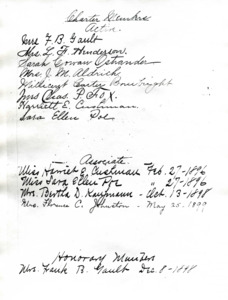 Charter Members
Active
Mrs F. B. Gault
Mrs. L. F. Henderson
Sarah Cowan Ostrander
Mrs. J. M. Aldrich
Carter Boatright
Mrs Chas. P. Fox
Harriett E. Cushman
Sara Ellen Poe
Associate
Miss Harriet E. Cushman Feb. 27-1896
Miss Sara Ellen Poe " 27-1896
Mrs. Bertha D. Kaufmann - Oct. 13-1898
Mrs. Florence C. Johnston - May 25, 1899
Honorary Members
Mrs. Frank B. Gault Dec. 8-1898